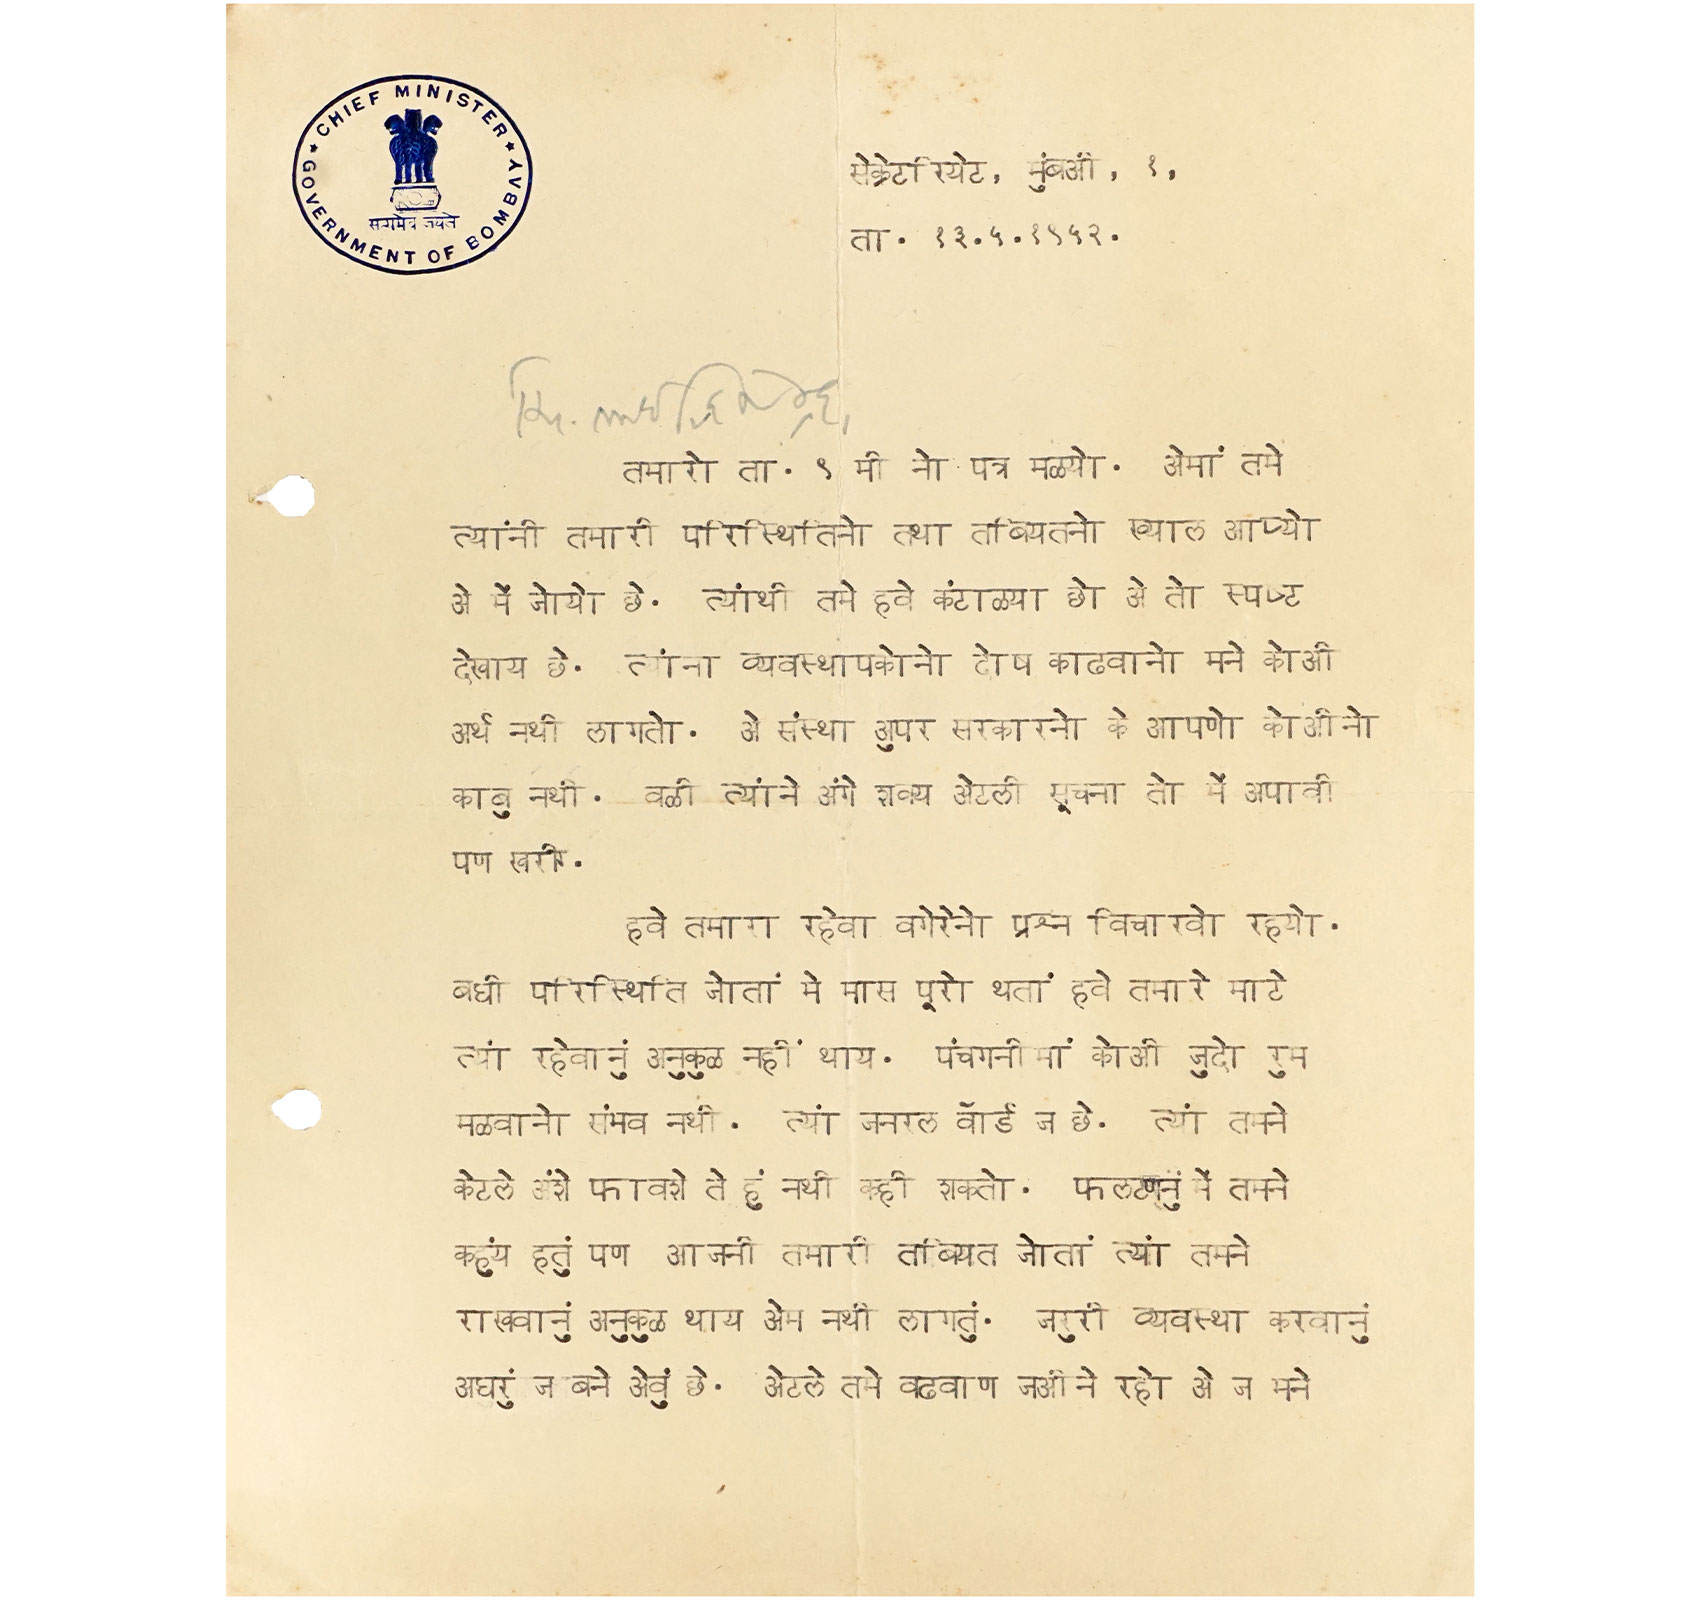 CHIEF MINISTER
GOVERNMENT OF BOMBAY
सत्यमेव जयते
सेक्रेटरियेट, मुंबअी, १,
ता. १३.५.१९५२.
तमारो ता. ९ मी नो पत्र मळयो. अेमां तमे
त्यांनी तमारी परिस्थितिनो तथा तबियतनो ख्याल आप्यो
अे में जोयो छे. त्यांथी तमे हवे कंटाळया छो अे तो स्पष्ट
देखाय छे. त्यांना व्यवस्थापकोनो दोष काढवानो मने कोअी
अर्थ नथी लागतो. अे संस्था अुपर सरकारनो के आपणो कोअीनो
काबु नथी. वळी त्यांने अंगे शक्य अेटली सूचना तो में अपावी
पण खरी.
हवे तमारा रहेवा वगेरेनो प्रश्न विचारवो रहयो.
बधी परिस्थिति जोतां मे मास पूरो थतां हवे तमारे माटे
त्यां रहेवानुं अनुकुळ नहीं थाय. पंचगनीमां कोअी जुदो रुम
मळवानो संभव नथी. त्यां जनरल वॉर्ड ज छे. त्यां तमने
केटले अंशे फावशे ते हुं नथी कही शकतो. फलटणनुं में तमने
कहुंय हतुं पण आजनी तमारी तबियत जोतां त्यां तमने
राखवानुं अनुकुळ थाय अेम नथी लागतुं. जरुरी व्यवस्था करवानुं
अघरुं ज बने अेवुं छे. अेटले तमे वढवाण जअीने रहो अे ज मने